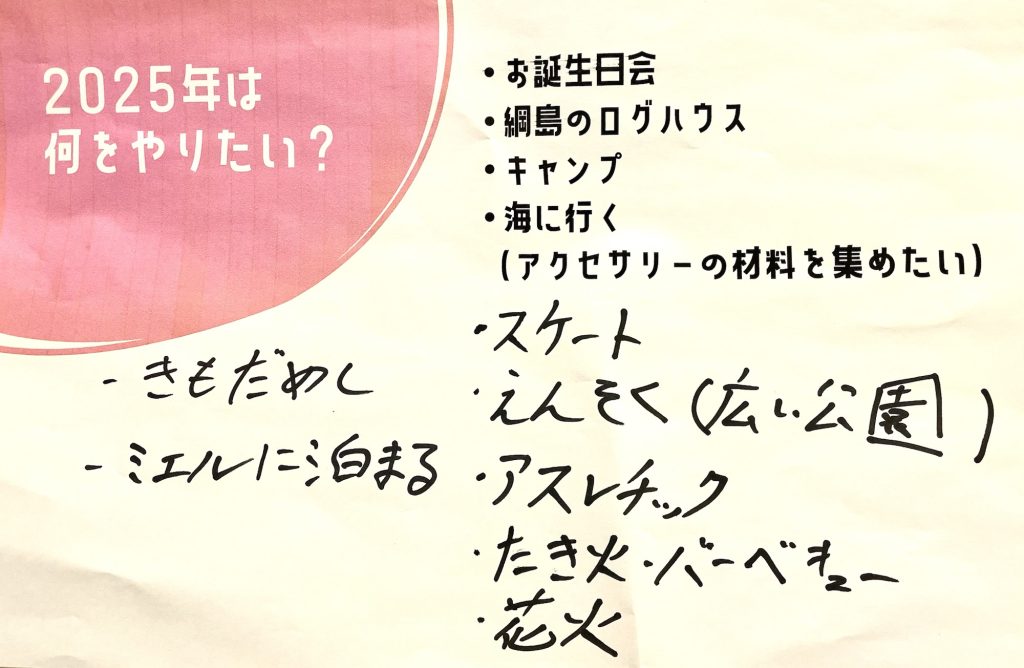 2025年は
何をやりたい？
・お誕生日会
・綱島のログハウス
・キャンプ
・海に行く
(アクセサリーの材料を集めたい)
・スケート
・えんそく(広い公園)
・アスレチック
・たき火・バーベキュー
・花火
- きもだめし
- ミエルに泊まる